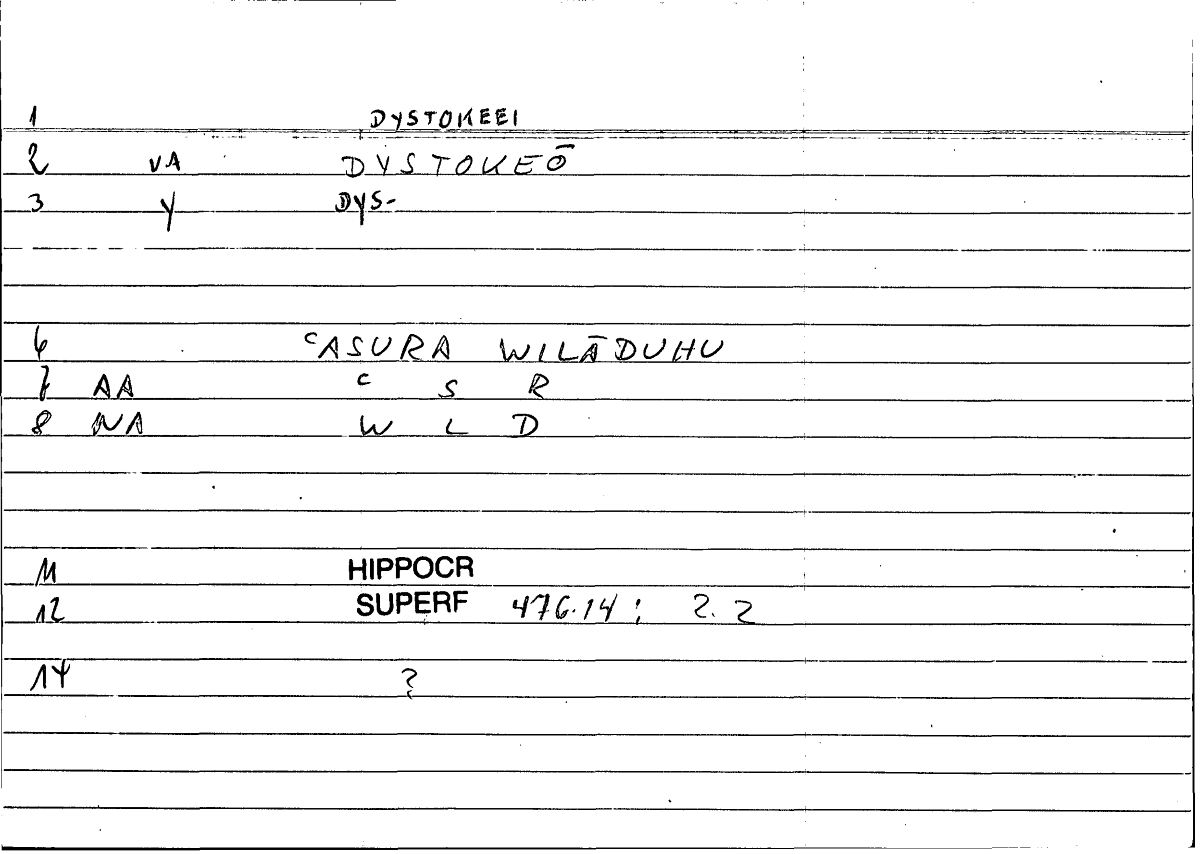 1 DYSTOKEEI
2 VA DYSTOKEŌ
3 Y DYS-
6 ᶜASURA WILĀDUHU
7 AA ᶜ S R
8 NA W L D
11 HIPPOCR
12 SUPERF 476.14 ; 2.2
14 ?